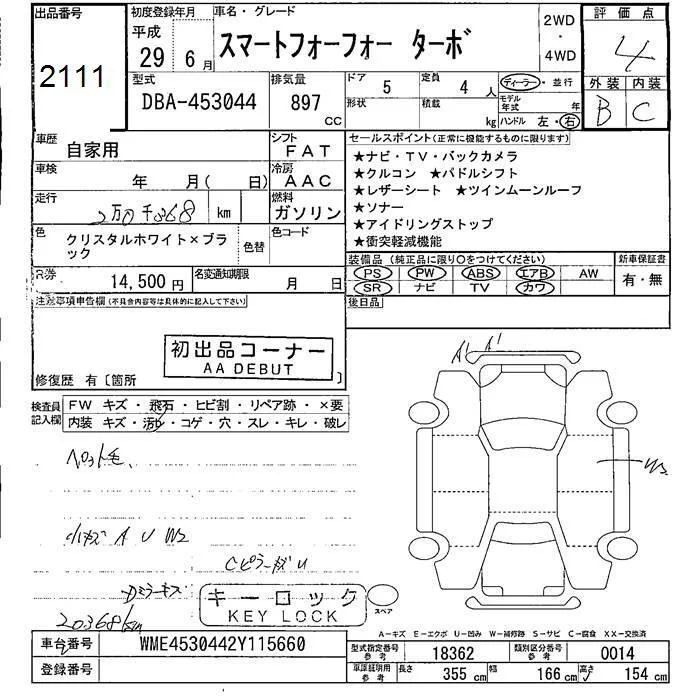 出品番号
2111
初度登録年月
平成
29 6月
車名・グレード
スマートフォーフォー ターボ
2WD
・
4WD
評価点
4
外装 内装
B C
型式
DBA-453044
排気量
897
CC
ドア
5
定員
4人
形状
積載
kg
ディーラー・並行
モデル年式 年
ハンドル 左・右
車歴
自家用
シフト
FAT
車検
年 月( 日)
冷房
AAC
走行
2万0千368 km
燃料
ガソリン
色
クリスタルホワイト×ブラック
色替
色コード
R券
14,500円
名変通知期限
月 日
セールスポイント(正常に機能するものに限ります)
★ナビ・TV・バックカメラ
★クルコン ★パドルシフト
★レザーシート ★ツインムーンルーフ
★ソナー
★アイドリングストップ
★衝突軽減機能
装備品(純正品に限り○をつけてください)
PS PW ABS エアB AW
SR ナビ TV カワ
新車保証書
有・無
後日品
注意事項申告欄(不具合内容等は具体的に記入して下さい)
初出品コーナー
AA DEBUT
修復歴 有〔箇所 〕
検査員記入欄
FW キズ・飛石・ヒビ割・リペア跡・×要
内装 キズ・汚れ・コゲ・穴・スレ・キレ・破レ
ペット毛
小キズ A U W2
CピラーキズU
Dミラーキズ
20368km
キーロック
KEY LOCK
スペア
A' A'
W2
A−キズ E−エクボ U−凹み W−補修跡 S−サビ C−腐食 XX−交換済
車台番号
WME4530442Y115660
登録番号
型式指定番号
参考
18362
類別区分番号
参考
0014
車庫証明用
参考
長さ 355cm 幅 166cm 高さ 154cm